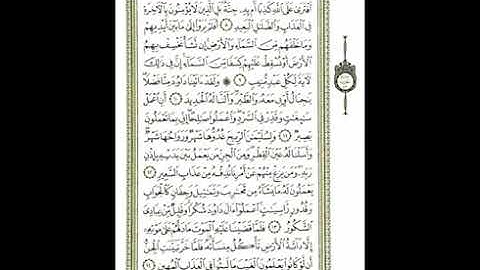 أَفْتَرَىٰ عَلَى ٱللَّهِ كَذِبًا أَم بِهِۦ جِنَّةٌۢ ۗ بَلِ ٱلَّذِينَ لَا يُؤْمِنُونَ بِٱلْـَٔاخِرَةِ
فِى ٱلْعَذَابِ وَٱلضَّلَٰلِ ٱلْبَعِيدِ ٨ أَفَلَمْ يَرَوْا۟ إِلَىٰ مَا بَيْنَ أَيْدِيهِمْ
وَمَا خَلْفَهُم مِّنَ ٱلسَّمَآءِ وَٱلْأَرْضِ ۚ إِن نَّشَأْ نَخْسِفْ بِهِمُ
ٱلْأَرْضَ أَوْ نُسْقِطْ عَلَيْهِمْ كِسَفًا مِّنَ ٱلسَّمَآءِ ۚ إِنَّ فِى ذَٰلِكَ
لَـَٔايَةً لِّكُلِّ عَبْدٍ مُّنِيبٍ ٩ ۞ وَلَقَدْ ءَاتَيْنَا دَاوُۥدَ مِنَّا فَضْلًا ۖ
يَٰجِبَالُ أَوِّبِى مَعَهُۥ وَٱلطَّيْرَ ۖ وَأَلَنَّا لَهُ ٱلْحَدِيدَ ١٠ أَنِ ٱعْمَلْ
سَٰبِغَٰتٍ وَقَدِّرْ فِى ٱلسَّرْدِ ۖ وَٱعْمَلُوا۟ صَٰلِحًا ۖ إِنِّى بِمَا تَعْمَلُونَ
بَصِيرٌ ١١ وَلِسُلَيْمَٰنَ ٱلرِّيحَ غُدُوُّهَا شَهْرٌ وَرَوَاحُهَا شَهْرٌ ۖ
وَأَسَلْنَا لَهُۥ عَيْنَ ٱلْقِطْرِ ۖ وَمِنَ ٱلْجِنِّ مَن يَعْمَلُ بَيْنَ يَدَيْهِ بِإِذْنِ
رَبِّهِۦ ۖ وَمَن يَزِغْ مِنْهُمْ عَنْ أَمْرِنَا نُذِقْهُ مِنْ عَذَابِ ٱلسَّعِيرِ ١٢
يَعْمَلُونَ لَهُۥ مَا يَشَآءُ مِن مَّحَٰرِيبَ وَتَمَٰثِيلَ وَجِفَانٍ كَٱلْجَوَابِ
وَقُدُورٍ رَّاسِيَٰتٍ ۚ ٱعْمَلُوٓا۟ ءَالَ دَاوُۥدَ شُكْرًا ۚ وَقَلِيلٌ مِّنْ عِبَادِىَ
ٱلشَّكُورُ ١٣ فَلَمَّا قَضَيْنَا عَلَيْهِ ٱلْمَوْتَ مَا دَلَّهُمْ عَلَىٰ مَوْتِهِۦٓ
إِلَّا دَآبَّةُ ٱلْأَرْضِ تَأْكُلُ مِنسَأَتَهُۥ ۖ فَلَمَّا خَرَّ تَبَيَّنَتِ ٱلْجِنُّ
أَن لَّوْ كَانُوا۟ يَعْلَمُونَ ٱلْغَيْبَ مَا لَبِثُوا۟ فِى ٱلْعَذَابِ ٱلْمُهِينِ ١٤